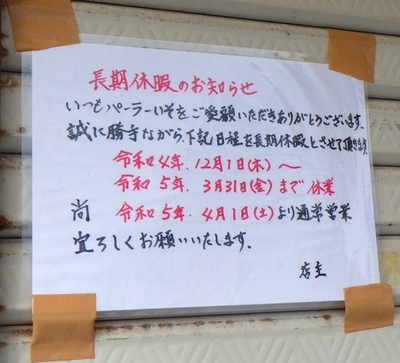 長期休暇のお知らせ
いつもパーラーいそをご愛顧いただきありがとうございます。
誠に勝手ながら、下記日程を長期休暇とさせて頂きます
令和4年.12月1日(木)〜
令和5年.3月31日(金)まで休業
尚 令和5年.4月1日(土)より通常営業
宜ろしくお願いいたします.
店主